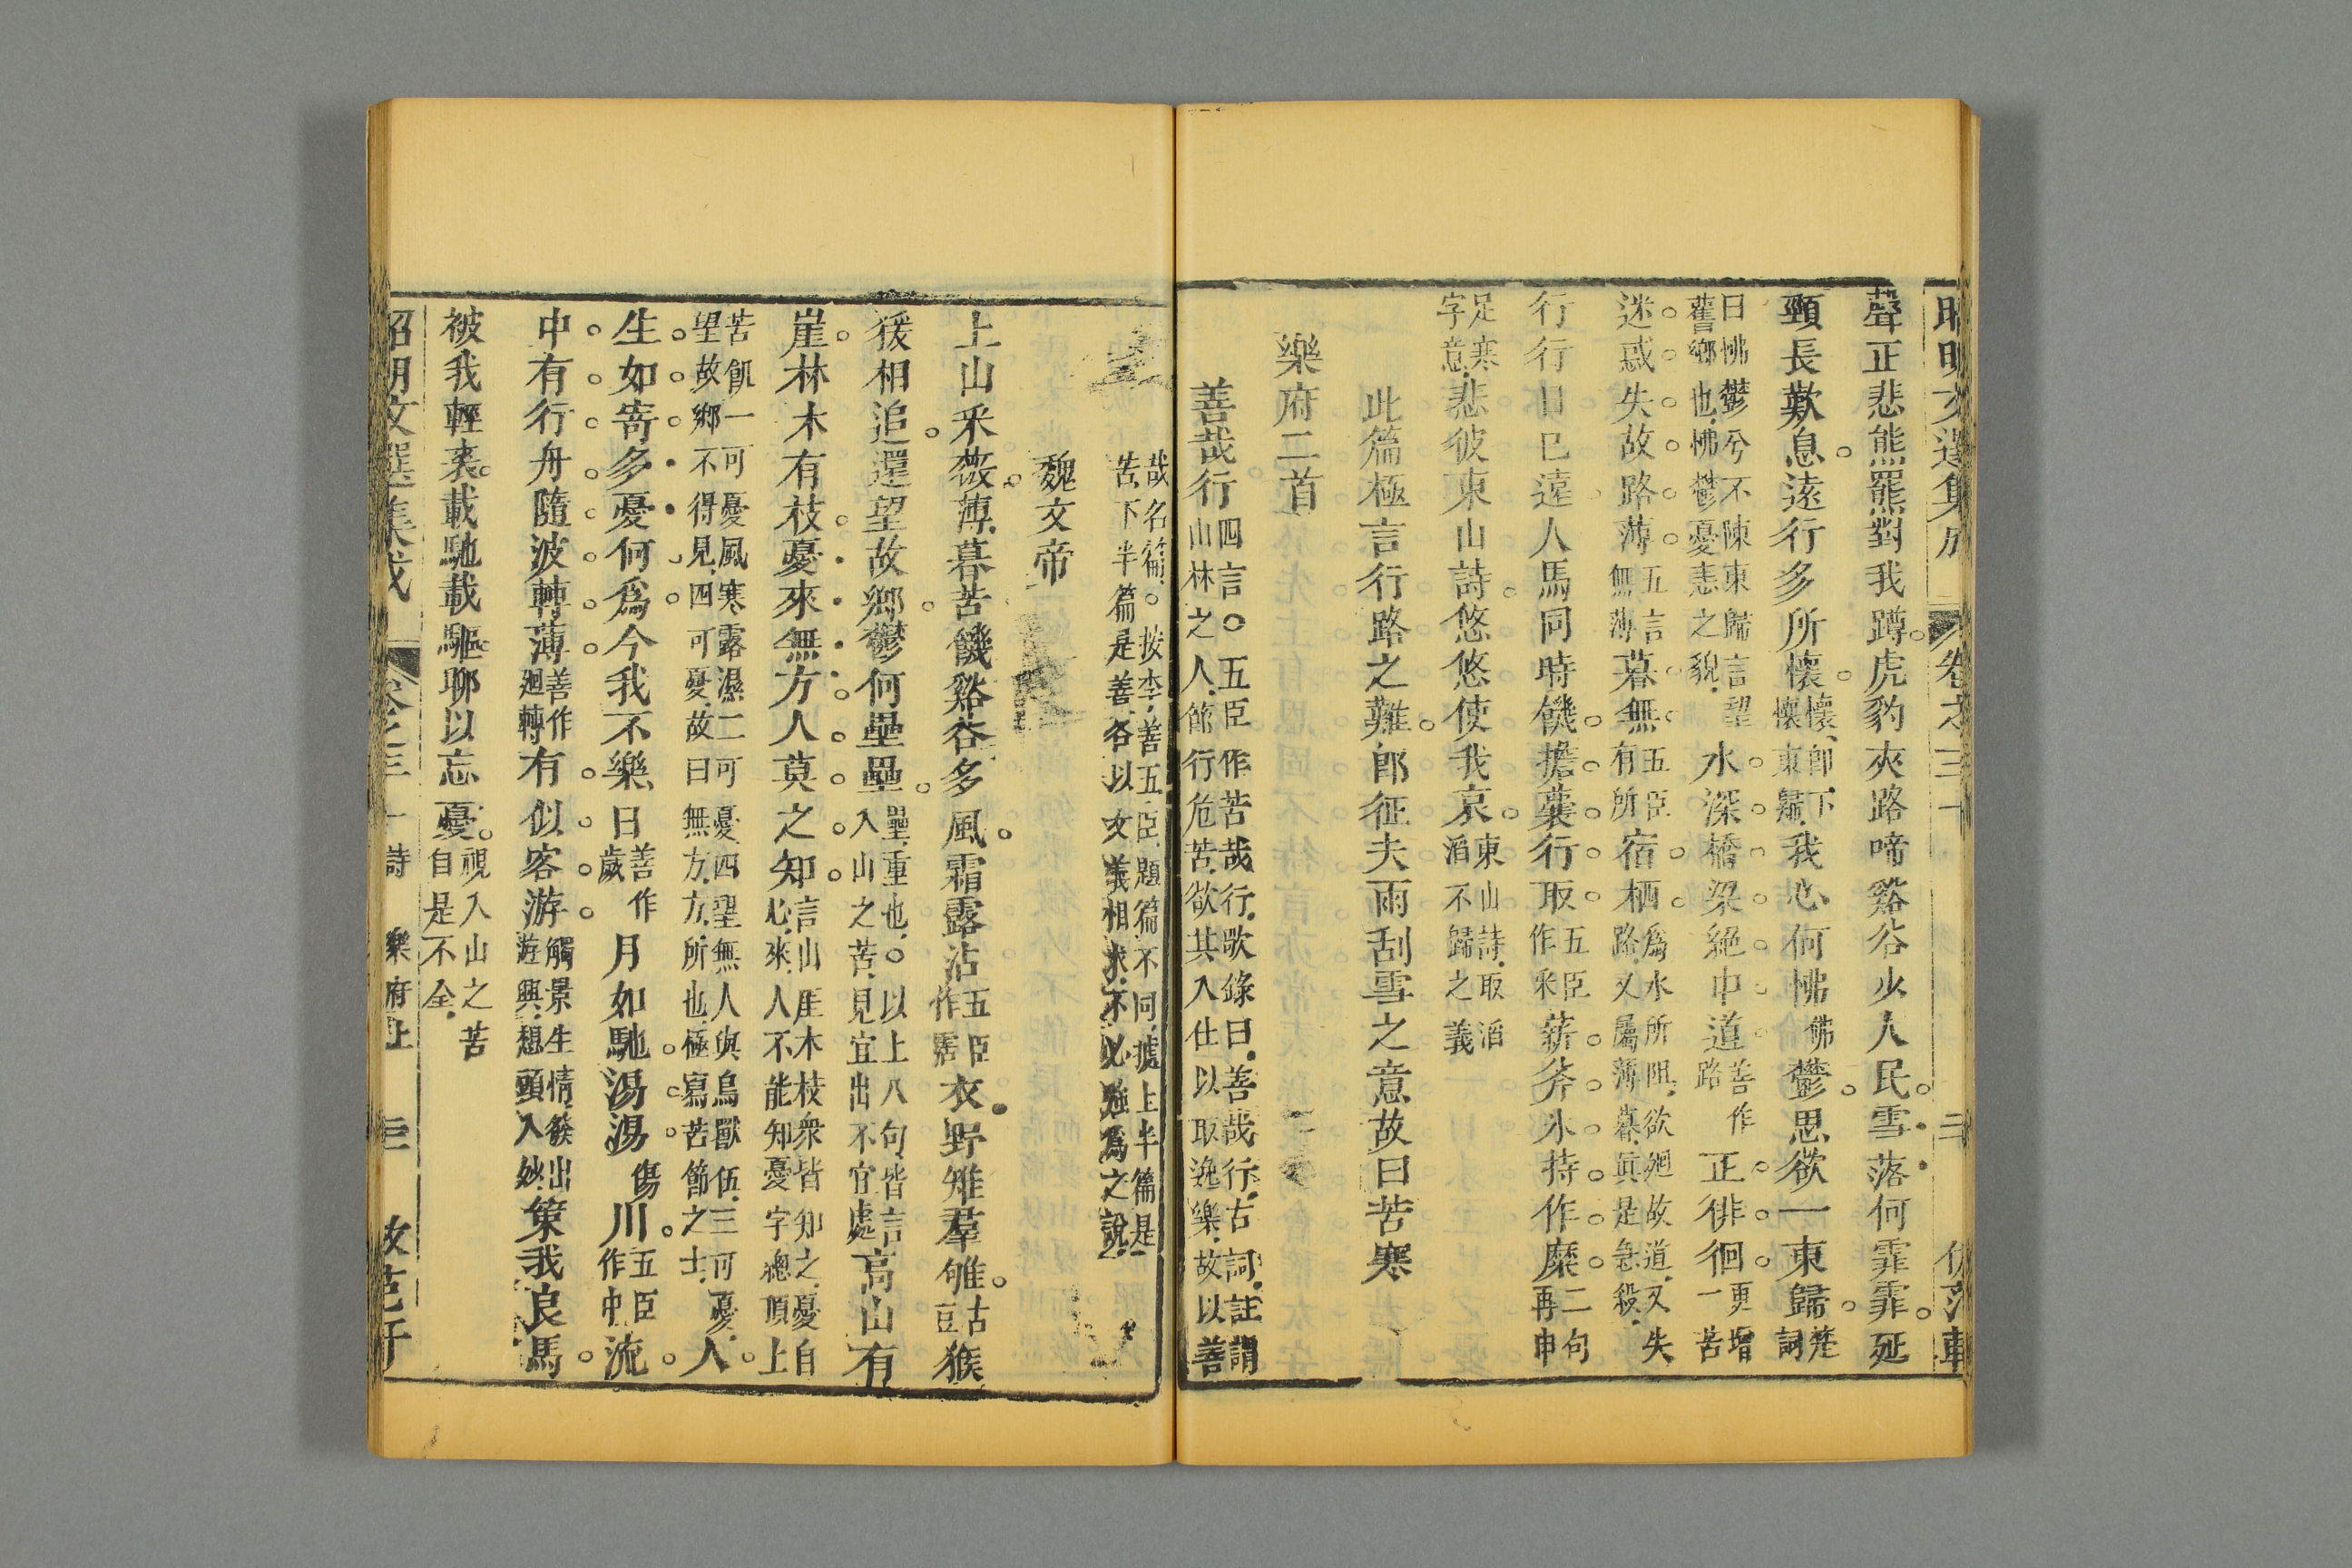 聲正悲熊羆對我蹲虎豹夾路啼谿谷少人民雪落何霏霏延
頸長歎息遠行多所懷懷卽下懷東歸我心何怫佛鬱思欲一東歸楚詞
曰怫鬱兮不陳東歸言望舊鄉也怫鬱憂恚之貌水深橋梁絕中道善作路正徘徊更增一苦
迷惑失故路薄五言無薄暮無五臣有所宿栖爲水所阻欲廻故道又失路又屬薄暮眞是急殺
行行日已遠人馬同時饑擔囊行取五臣作釆薪斧氷持作糜二句再申
足寒字意悲彼東山詩悠悠使我哀東山詩取滔滔不歸之義
此篇極言行路之難卽征夫雨刮雪之意故曰苦寒
樂府二首
善哉行四言○五臣作苦哉行歌錄曰善哉行古詞註謂山林之人節行危苦欲其入仕以取逸樂故以善
哉名篇○按李善五臣題篇不同據上半篇是苦下半篇是善各以文義相求不必強爲之說
魏文帝
上山釆薇薄暮苦饑谿谷多風霜露沾五臣作霑衣野雉羣雊古豆猴
猨相追還望故鄉鬱何壘壘壘重也○以上八句皆言入山之苦見宜出不宜處高山有
崖林木有枝憂來無方人莫之知言山崖木枝衆皆知之憂自心來人不能知憂字總頂上
苦飢一可憂風寒露濕二可憂四望無人與鳥獸伍三可憂望故鄉不得見四可憂故曰無方方所也極寫苦節之士人
生如寄多憂何爲今我不樂日善作歲月如馳湯湯傷川五臣作中流
中有行舟隨波轉薄善作廻轉有似客游觸景生情篸出遊興想頭入妙策我良馬
被我輕裘載馳載驅聊以忘憂視入山之苦自是不仝
昭明文選集成 卷之三十 詩 樂府上